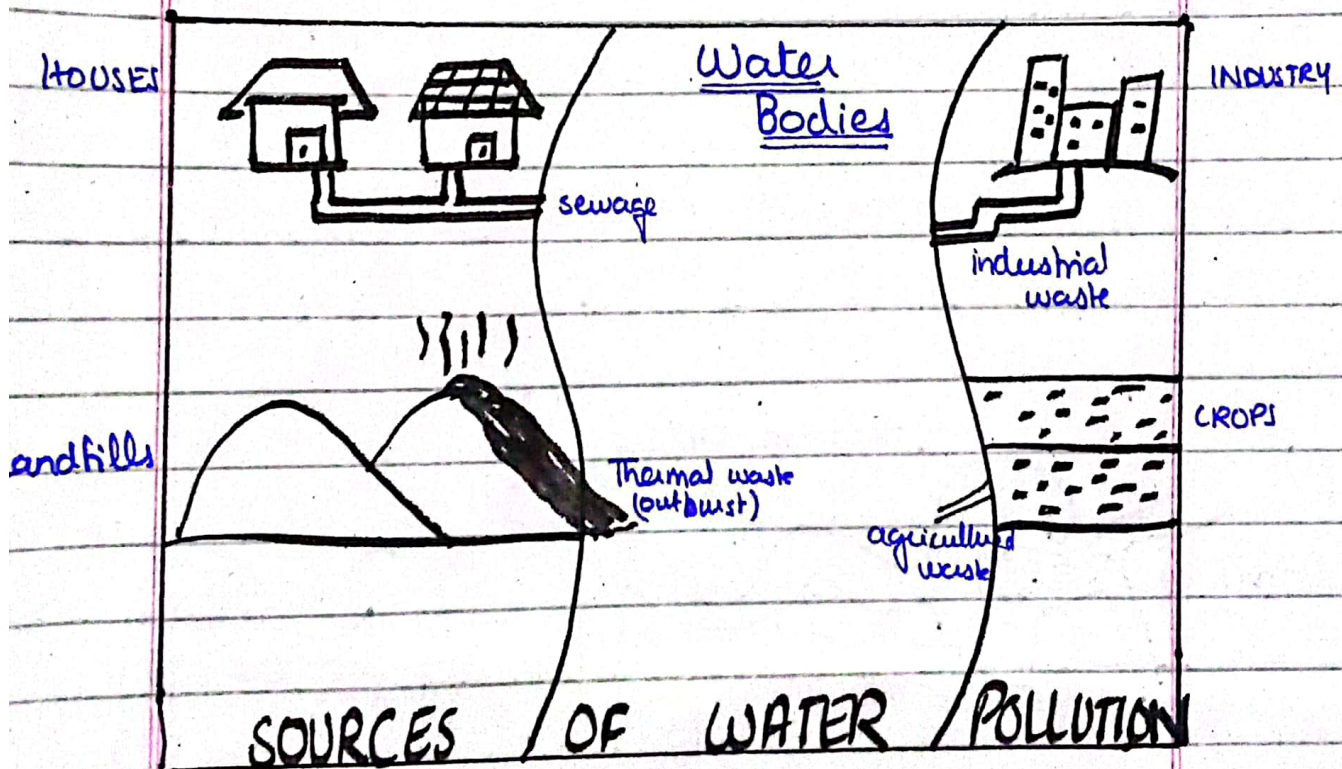 HOUSES
Water
Bodies
INDUSTRY
sewage
industrial
waste
CROPS
andfills
Thermal waste
(outburst)
agricultural
waste
SOURCES OF WATER POLLUTION